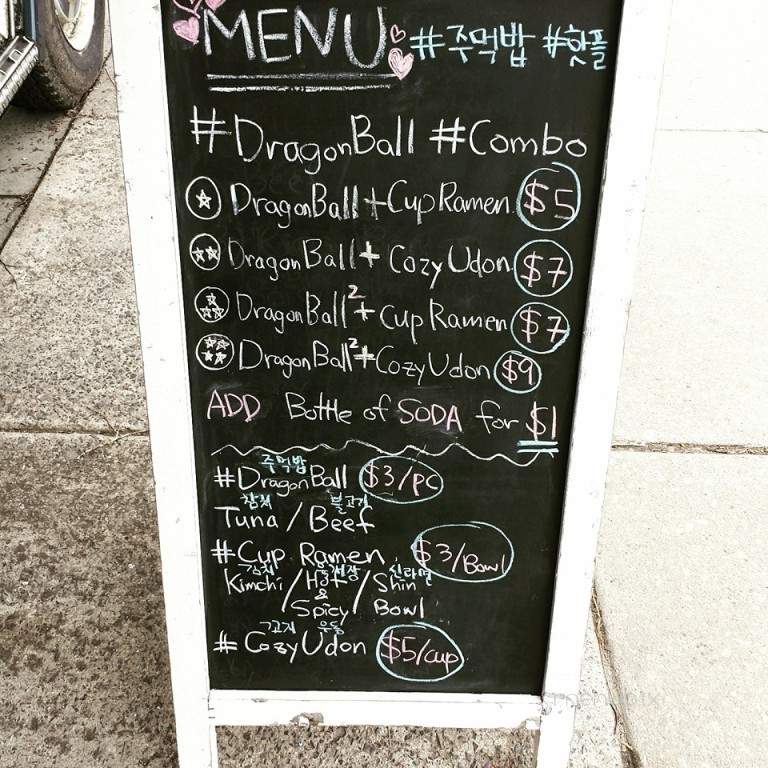 MENU #주먹밥 #핫플
#DragonBall #Combo
DragonBall+Cup Ramen $5
DragonBall+ Cozy Udon $7
DragonBall²+ Cup Ramen $7
DragonBall²+Cozy Udon $9
ADD Bottle of SODA for $1
주먹밥
#DragonBall $3/pc
참치 불고기
Tuna / Beef
#Cup Ramen $3/Bowl
김치 신라면
Kimchi / Hot & Spicy / Shin Bowl
우동
# Cozy Udon $5/cup